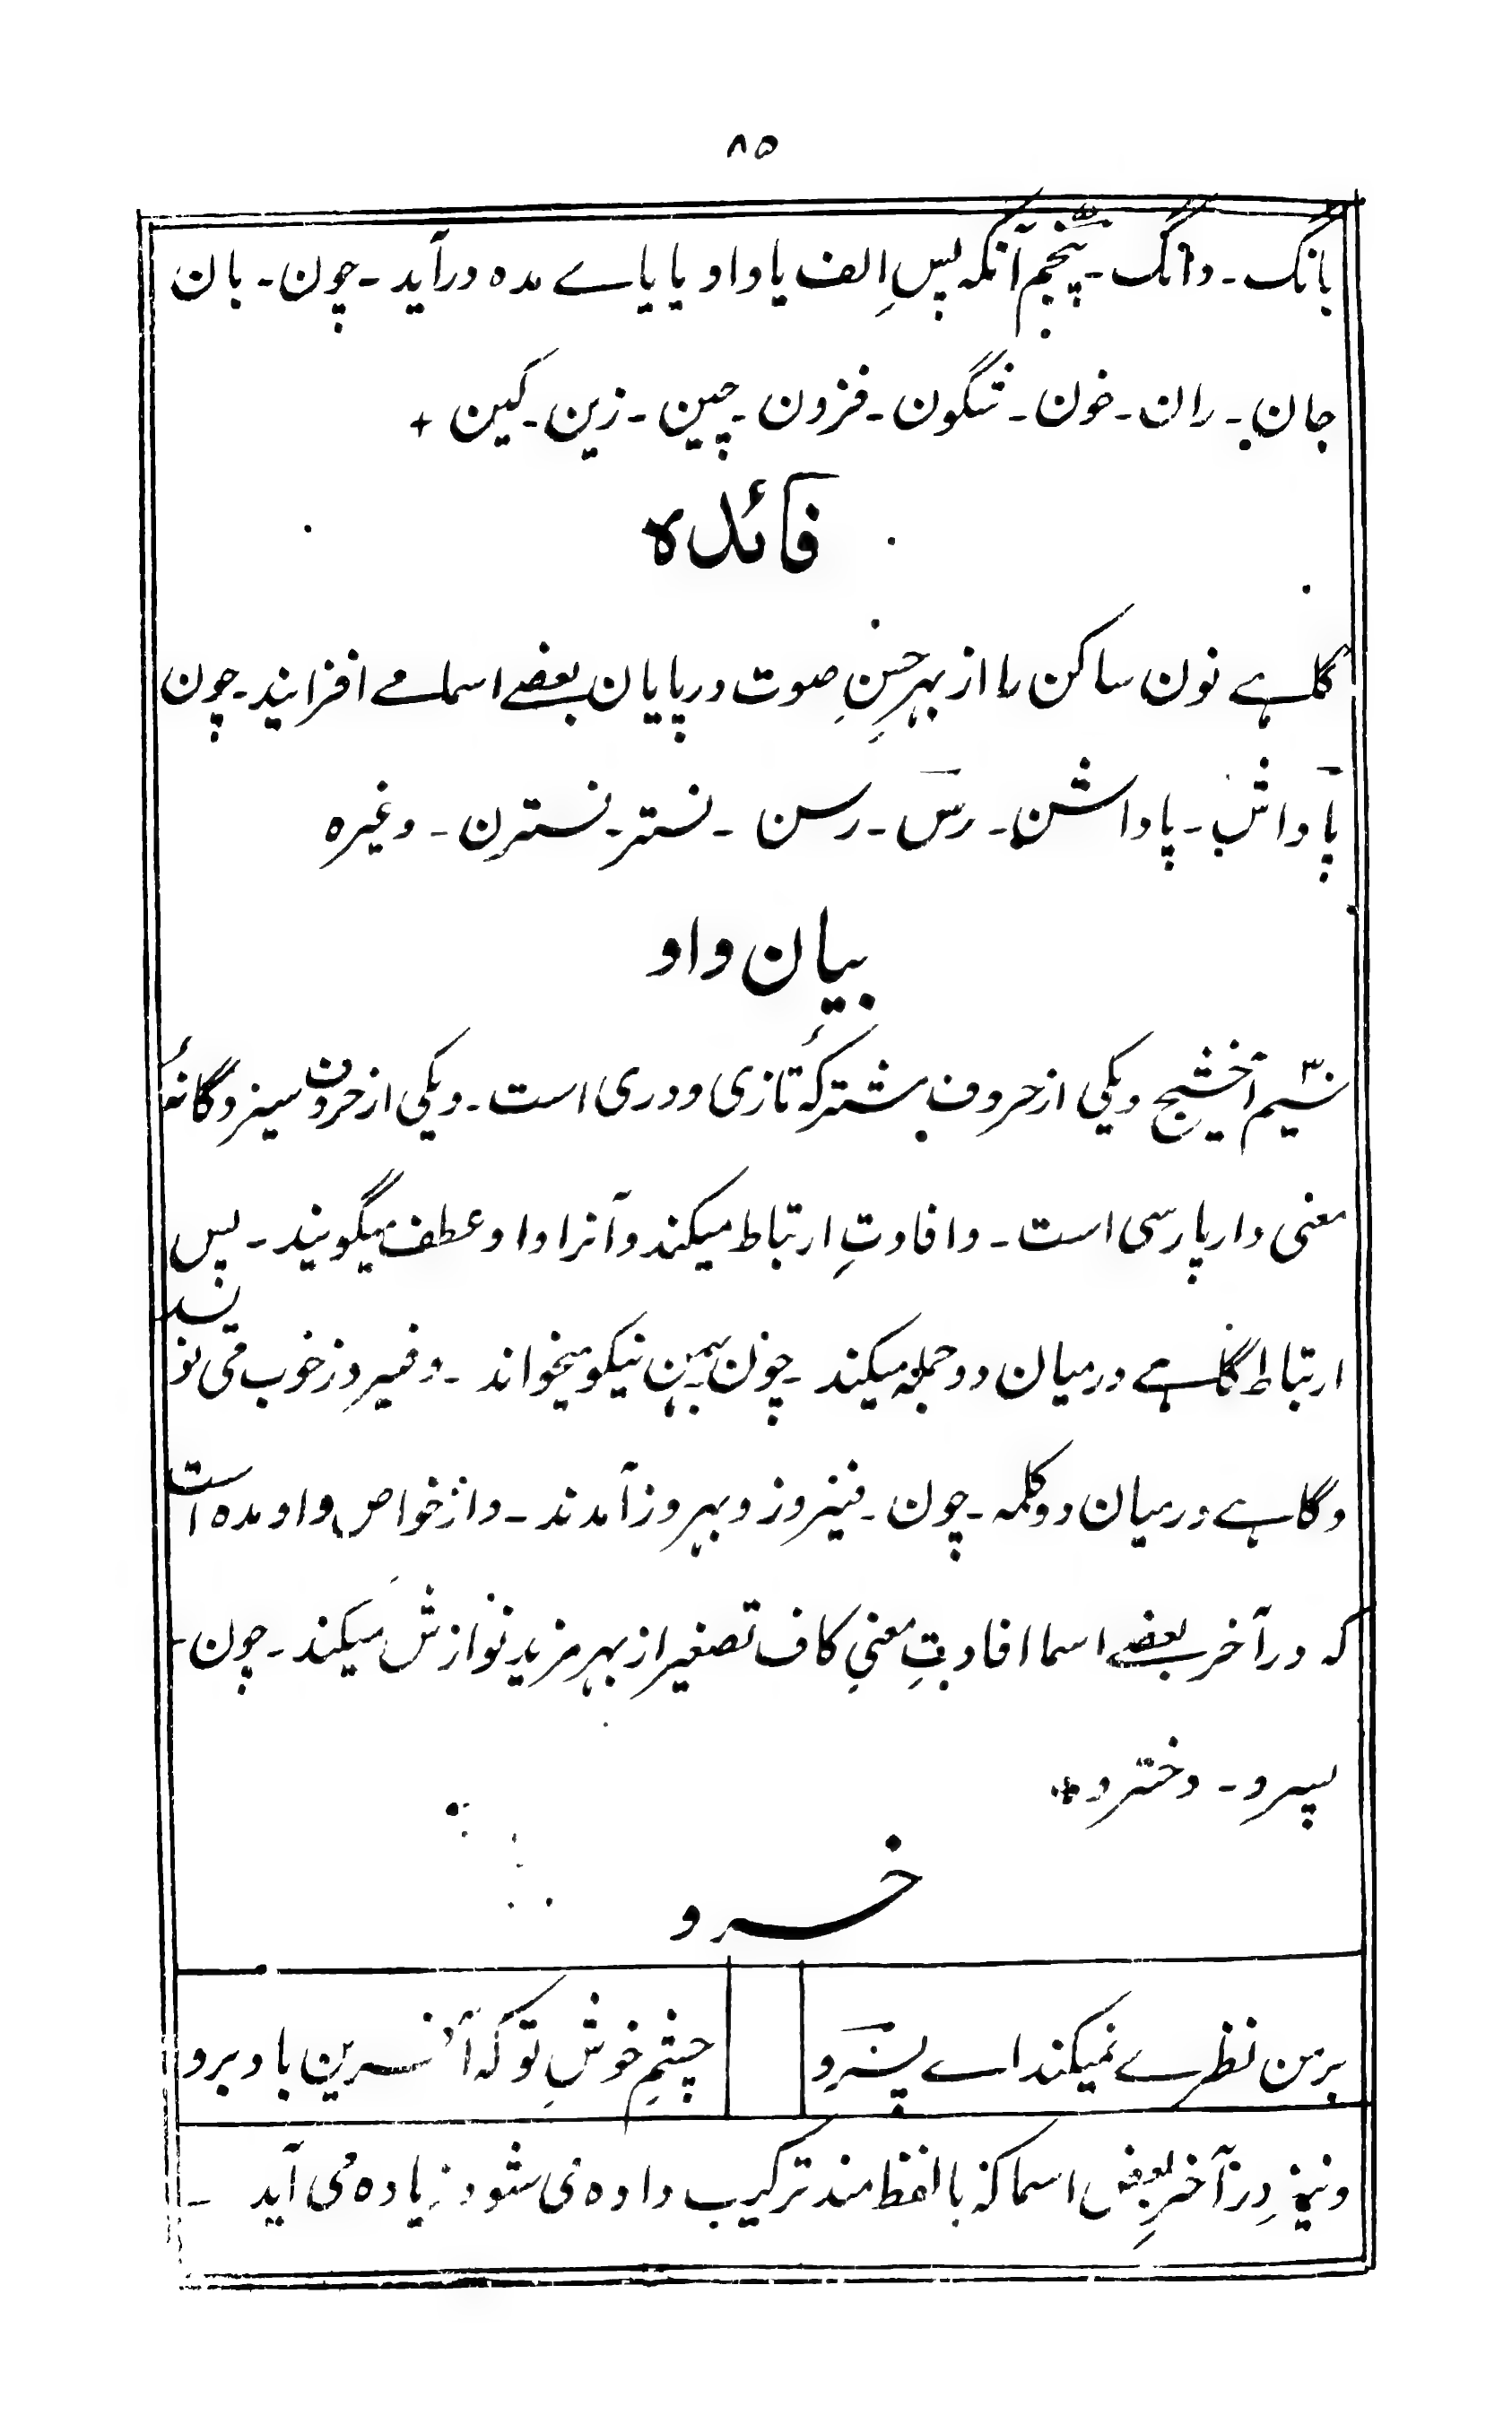 ۸۵
بانگ - دانگ - پنجم آنکه پسِ الف یا واو یا یاے مده درآید - چون - بان
جان - ران - خون - شگون - فزون - چین - زین - کین +
فائده
گاہے نون ساکن را از بهر حسنِ صوت در پایان بعضے اسما مے افزایند - چون
پاداش - پاداشن - رس - رسن - نستر - نسترن - وغیره
بیان واو
سیم آخشیج و یکی از حروف مشترکهٔ تازی و دری است - و یکی از حروف سیزدگانهٔ
معنی دار پارسی است - و افادتِ ارتباط میکند و آنرا واو عطف میگویند - پس
ارتباط گاہے درمیان دو جمله میکند - چون بهمن نیکو میخواند - و فیروز خوب می نویسد
و گاہے درمیان دو کلمه - چون - فیروز و بهروز آمدند - و از خواص واو مده است
که در آخر بعضے اسما افادتِ معنیِ کاف تصغیر از بهر مزید نوازش میکند - چون -
پسرو - دخترو +
خسرو
بر من نظرے نمیکند اے پسرو
چشمِ خوشِ تو که آفرین باد برو
و نیز در آخرِ بعض اسما که با لفظ مند ترکیب داده می شود زیاده می آید -